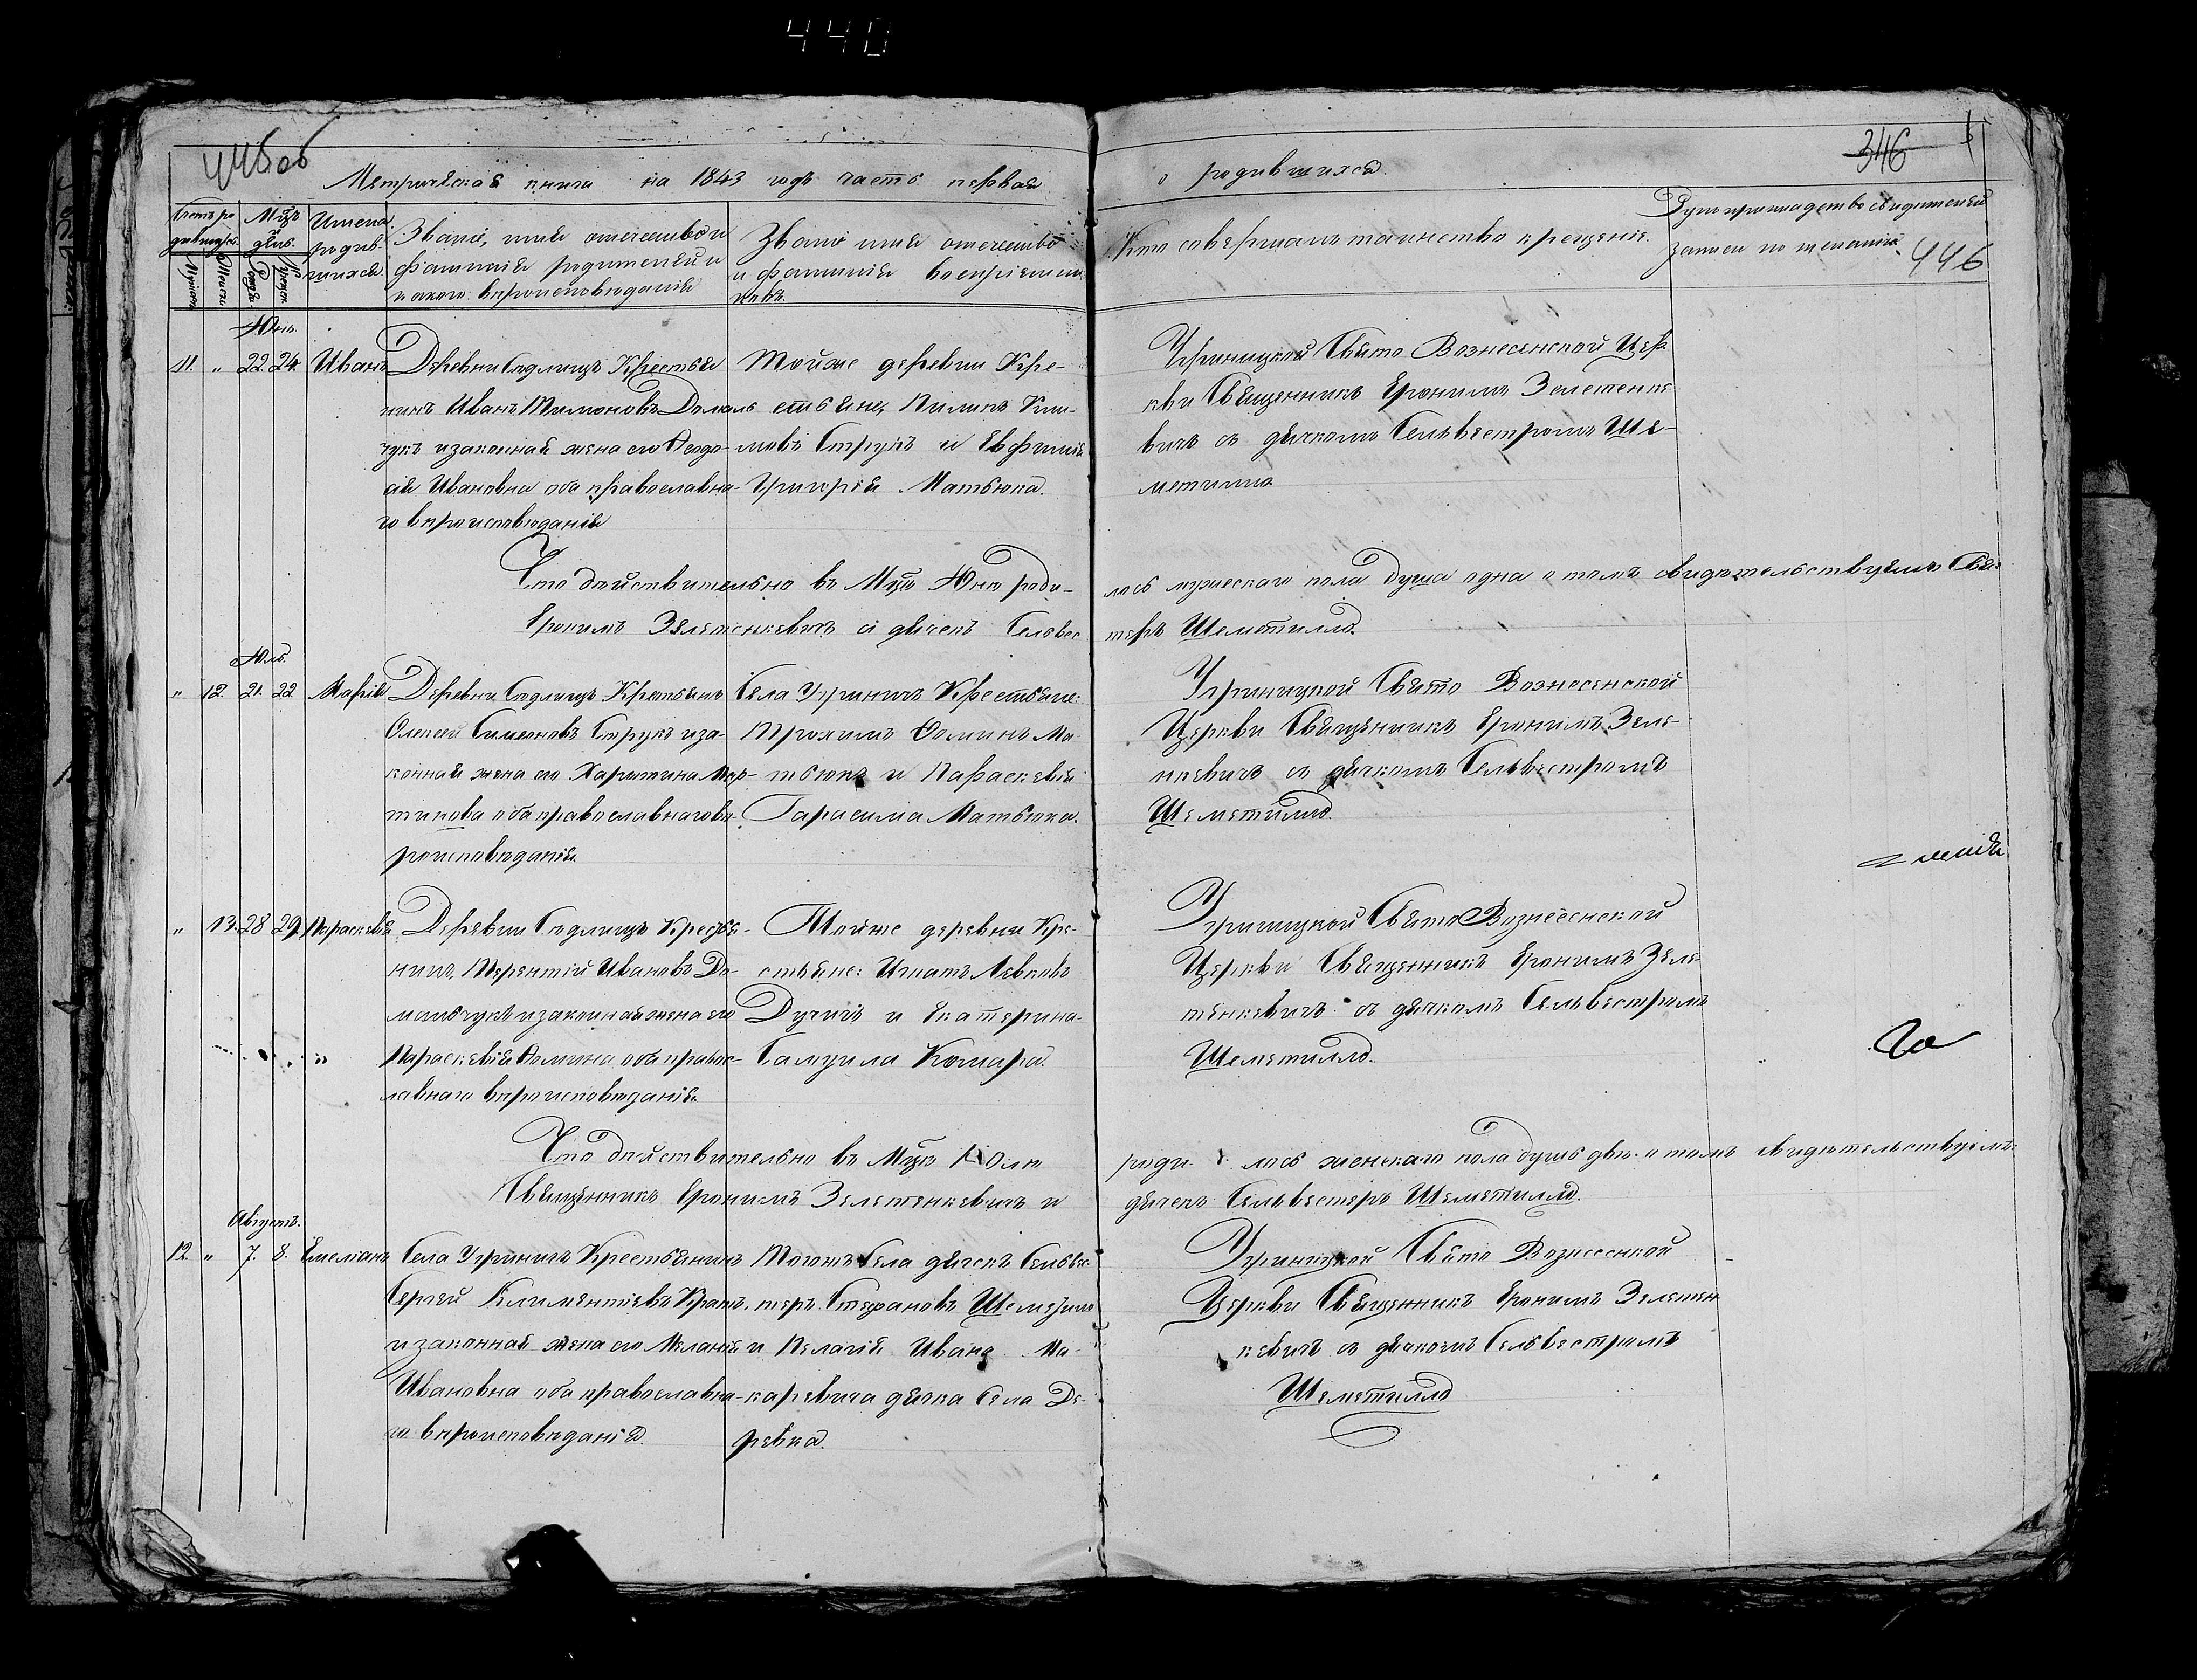 440
445об
346
446
Метрическая книга на 1843 годъ часть первая
о родившихся.
Счетъ родившихся.
Мужеска
Женска
Мѣцъ и день.
Рожден.
Крещен.
Имена родившихся.
Званіе, имя отечество и
фамилія родителей и
и какого вѣроисповѣданія
Званіе имя отечество
и фамилія воспріемни
ковъ.
Кто совершалъ таинство крещенія.
Рукоприкладство свидѣтелей
записи по желанію
Юнь.
11. " 22. 24. Иванъ
Деревни Сѣдлищъ Крестья
нинъ Иванъ Тимоновъ Домаль
чукъ и законная жена его Феодо-
ія Ивановна оба православна-
го вѣроисповѣданія
Тойже деревни Кре-
стьяне, Пилипъ Кли-
мовъ Струкъ и Евфимія
Григорія Матвюка.
Угриницкой Свято Вознесенской Цер
кви Священникъ Еронимъ Зелетенке
вичъ съ дячкомъ Сельвестромъ Ше-
метилло
Что дѣйствительно въ Мцѣ Юнѣ роди-
лось мужескаго пола душа одна о томъ свидѣтельствуемъ Свя-
Еронимъ Зелетенкевичъ и дячекъ Сельвес
теръ Шеметилло.
Юль.
" 12. 21. 22 Марія
Деревни Сѣдлищъ Крестьянинъ
Олексей Симеоновъ Струкъ и за-
конная жена его Харитина Мар-
тинова оба православнаго вѣ-
роисповѣданія.
Села Угриничъ Крестьяне:
Трохимъ Фоминъ Ма-
твюкъ и Параскевія
Гарасима Матвюка.
Угриницкой Свято Вознесенской
Церкви Священникъ Еронимъ Зеле-
нкевичъ съ дячкомъ Сельвестромъ
Шеметилло.
" 13. 28 29. Параскевія
Деревни Сѣдлищъ Крестья-
нинъ, Терентій Ивановъ До-
мальчукъ и законная жена его
Параскевія Фомина оба правос-
лавнаго вѣроисповѣданія.
Тойже деревни Кре-
стьяне: Игнатъ Левковъ
Дучичъ и Екатерина-
Самуила Комара.
Угриницкой Свято Вознесенской
Церкви Священникъ Еронимъ Зеле
тенкевичъ съ дячкомъ Сельвестромъ
Шеметилло.
Что дѣйствительно въ Мцѣ Юлѣ
роди- лось женскаго пола душъ двѣ о томъ свидѣтельствуемъ:
Священникъ Еронимъ Зелетенкевичъ и
дячекъ Сельвестеръ Шеметилло.
Августъ.
12. " 7. 8. Емеліанъ
Села Угриничъ Крестьянинъ
Сергей Климентіевъ
и законная жена его Меланія
Ивановна оба православна-
го вѣроисповѣданія.
Тогожъ Села дячекъ Сельвес
теръ Стефановъ Шеметило
и Пелагія Ивана Ма-
каревича дячка Села Де-
ревка.
Угриницкой Свято Вознесенкой
Церкви Священникъ Еронимъ Зелетен
кевичъ съ дячкомъ Сельвестромъ
Шеметилло